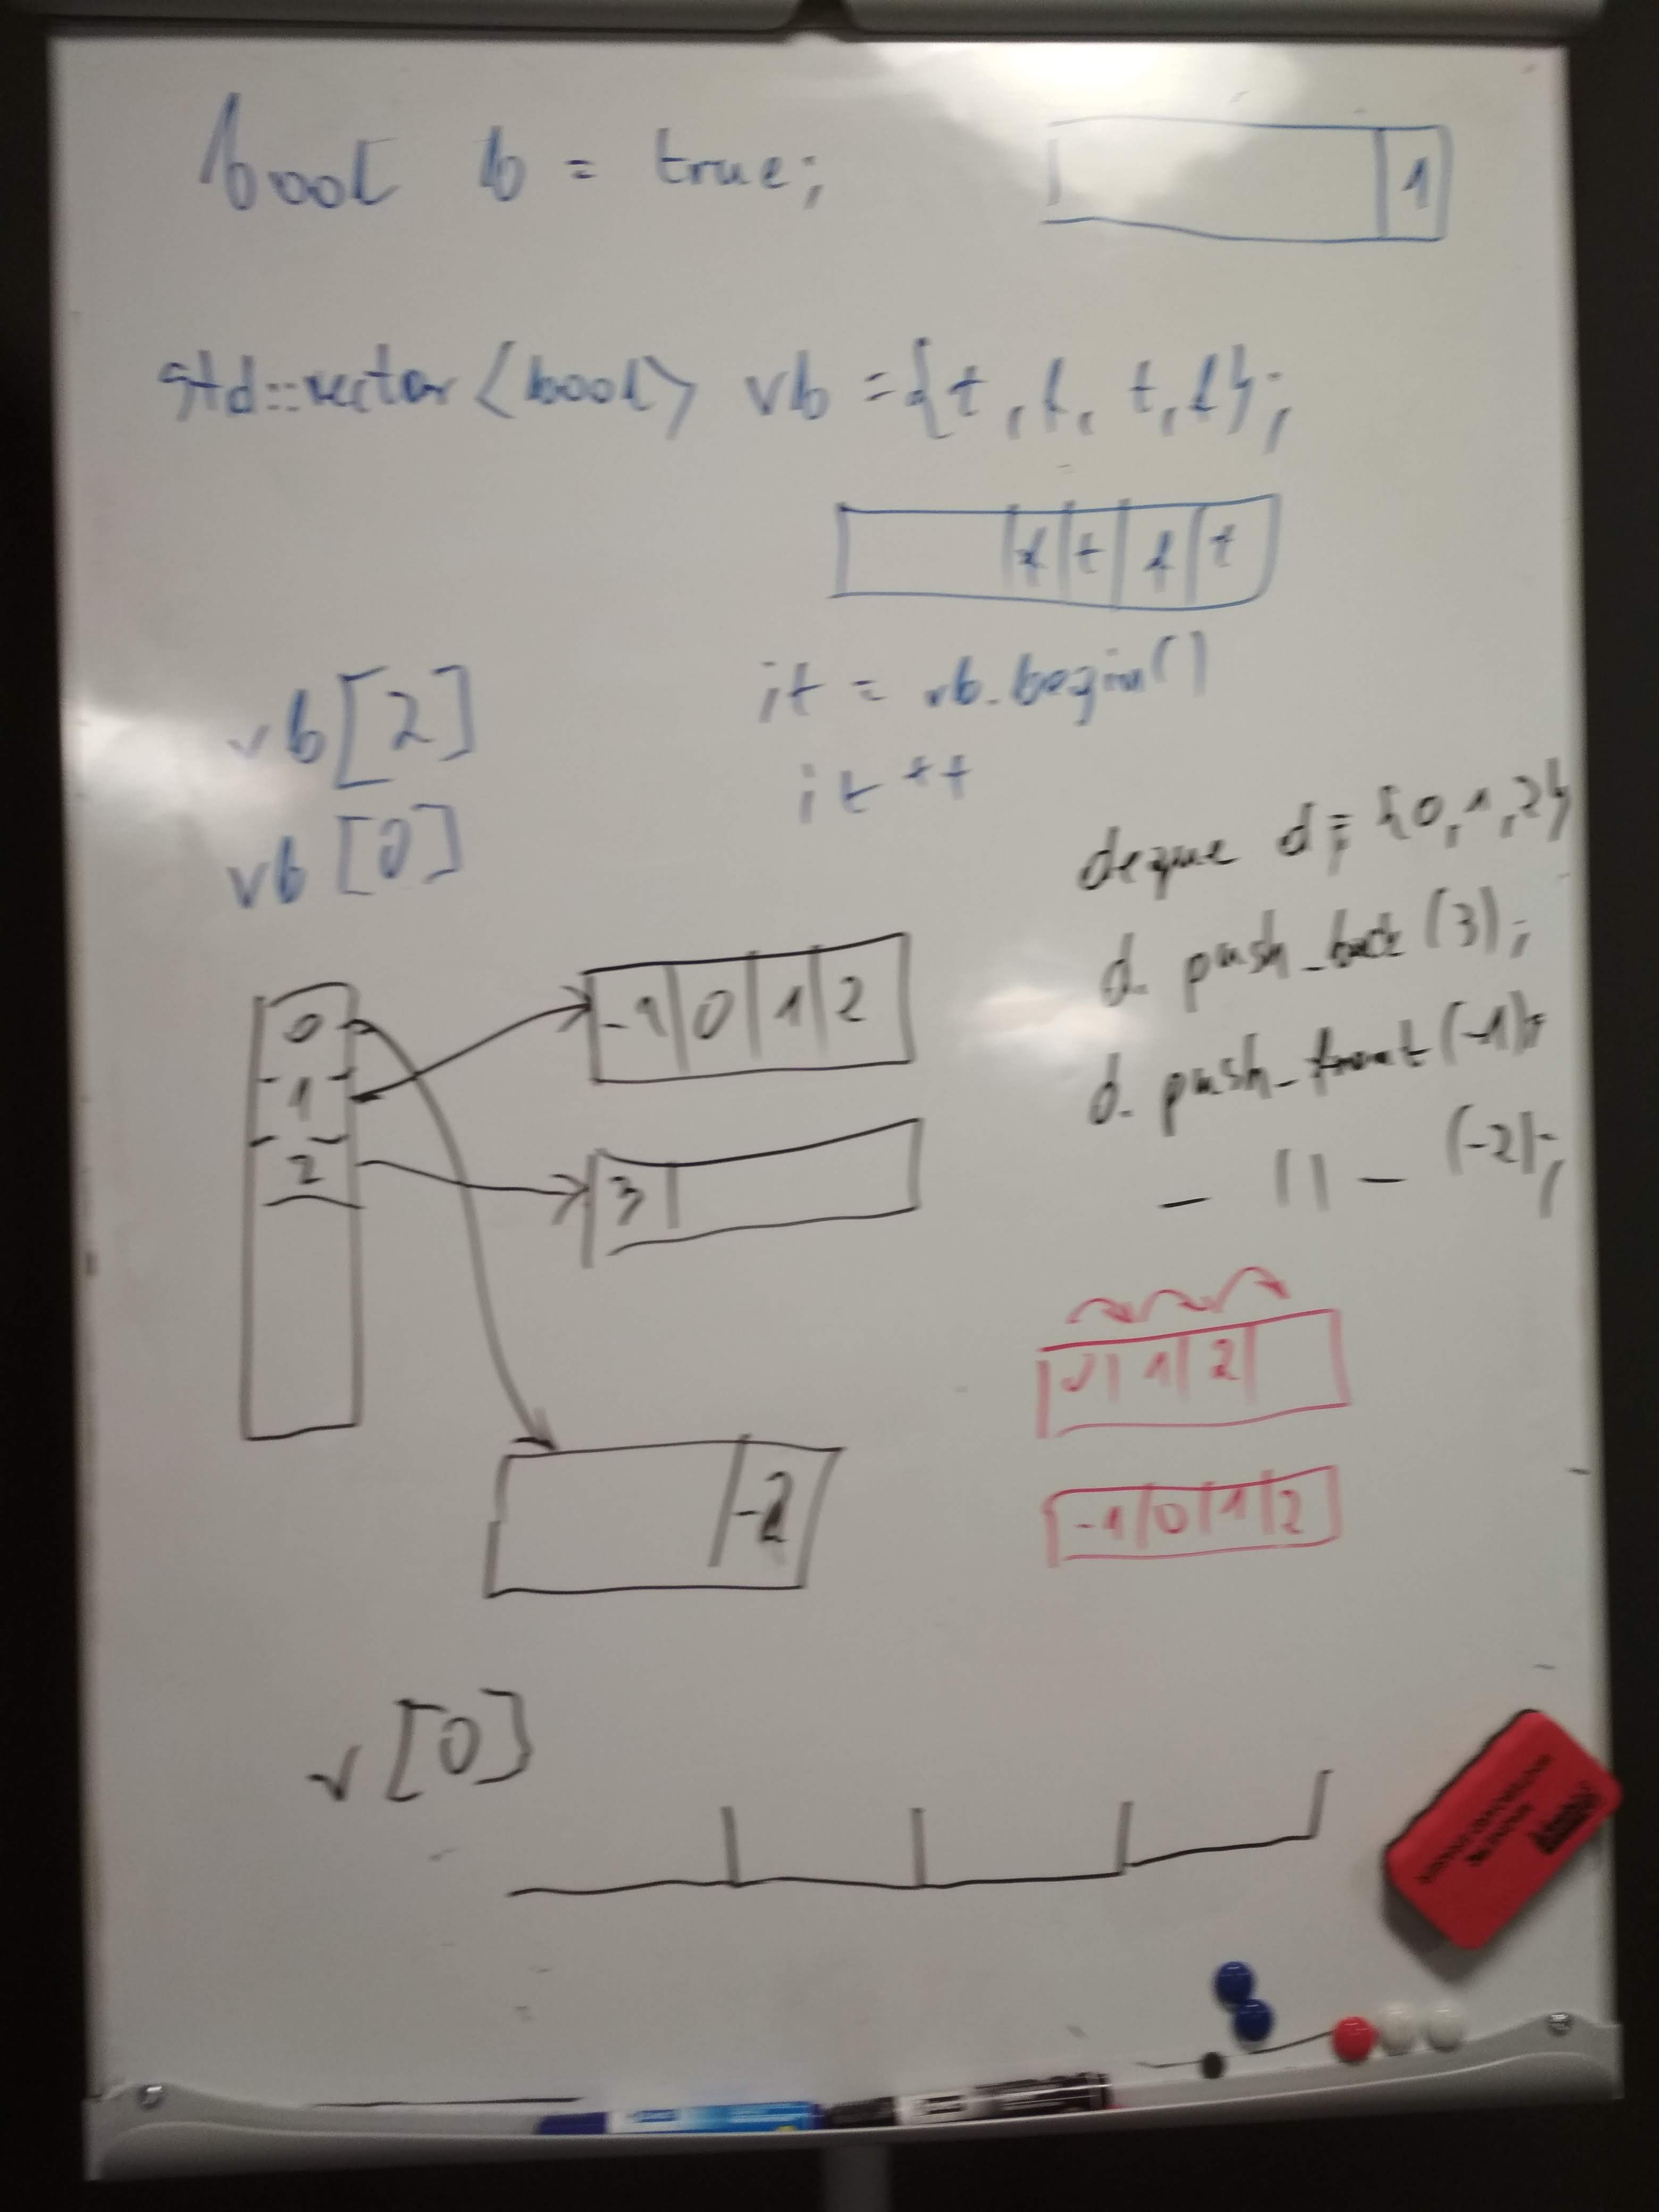 bool b = true;
1
std::vector<bool> vb = {t, f, t, f};
f t f t
vb[2]
it = vb.begin()
vb[0]
it++
deque d = {0,1,2}
d. push_back (3);
d. push_front (-1);
— || — (-2);
0
1
2
-1 0 1 2
3
-2
0 1 2
-1 0 1 2
v[0]